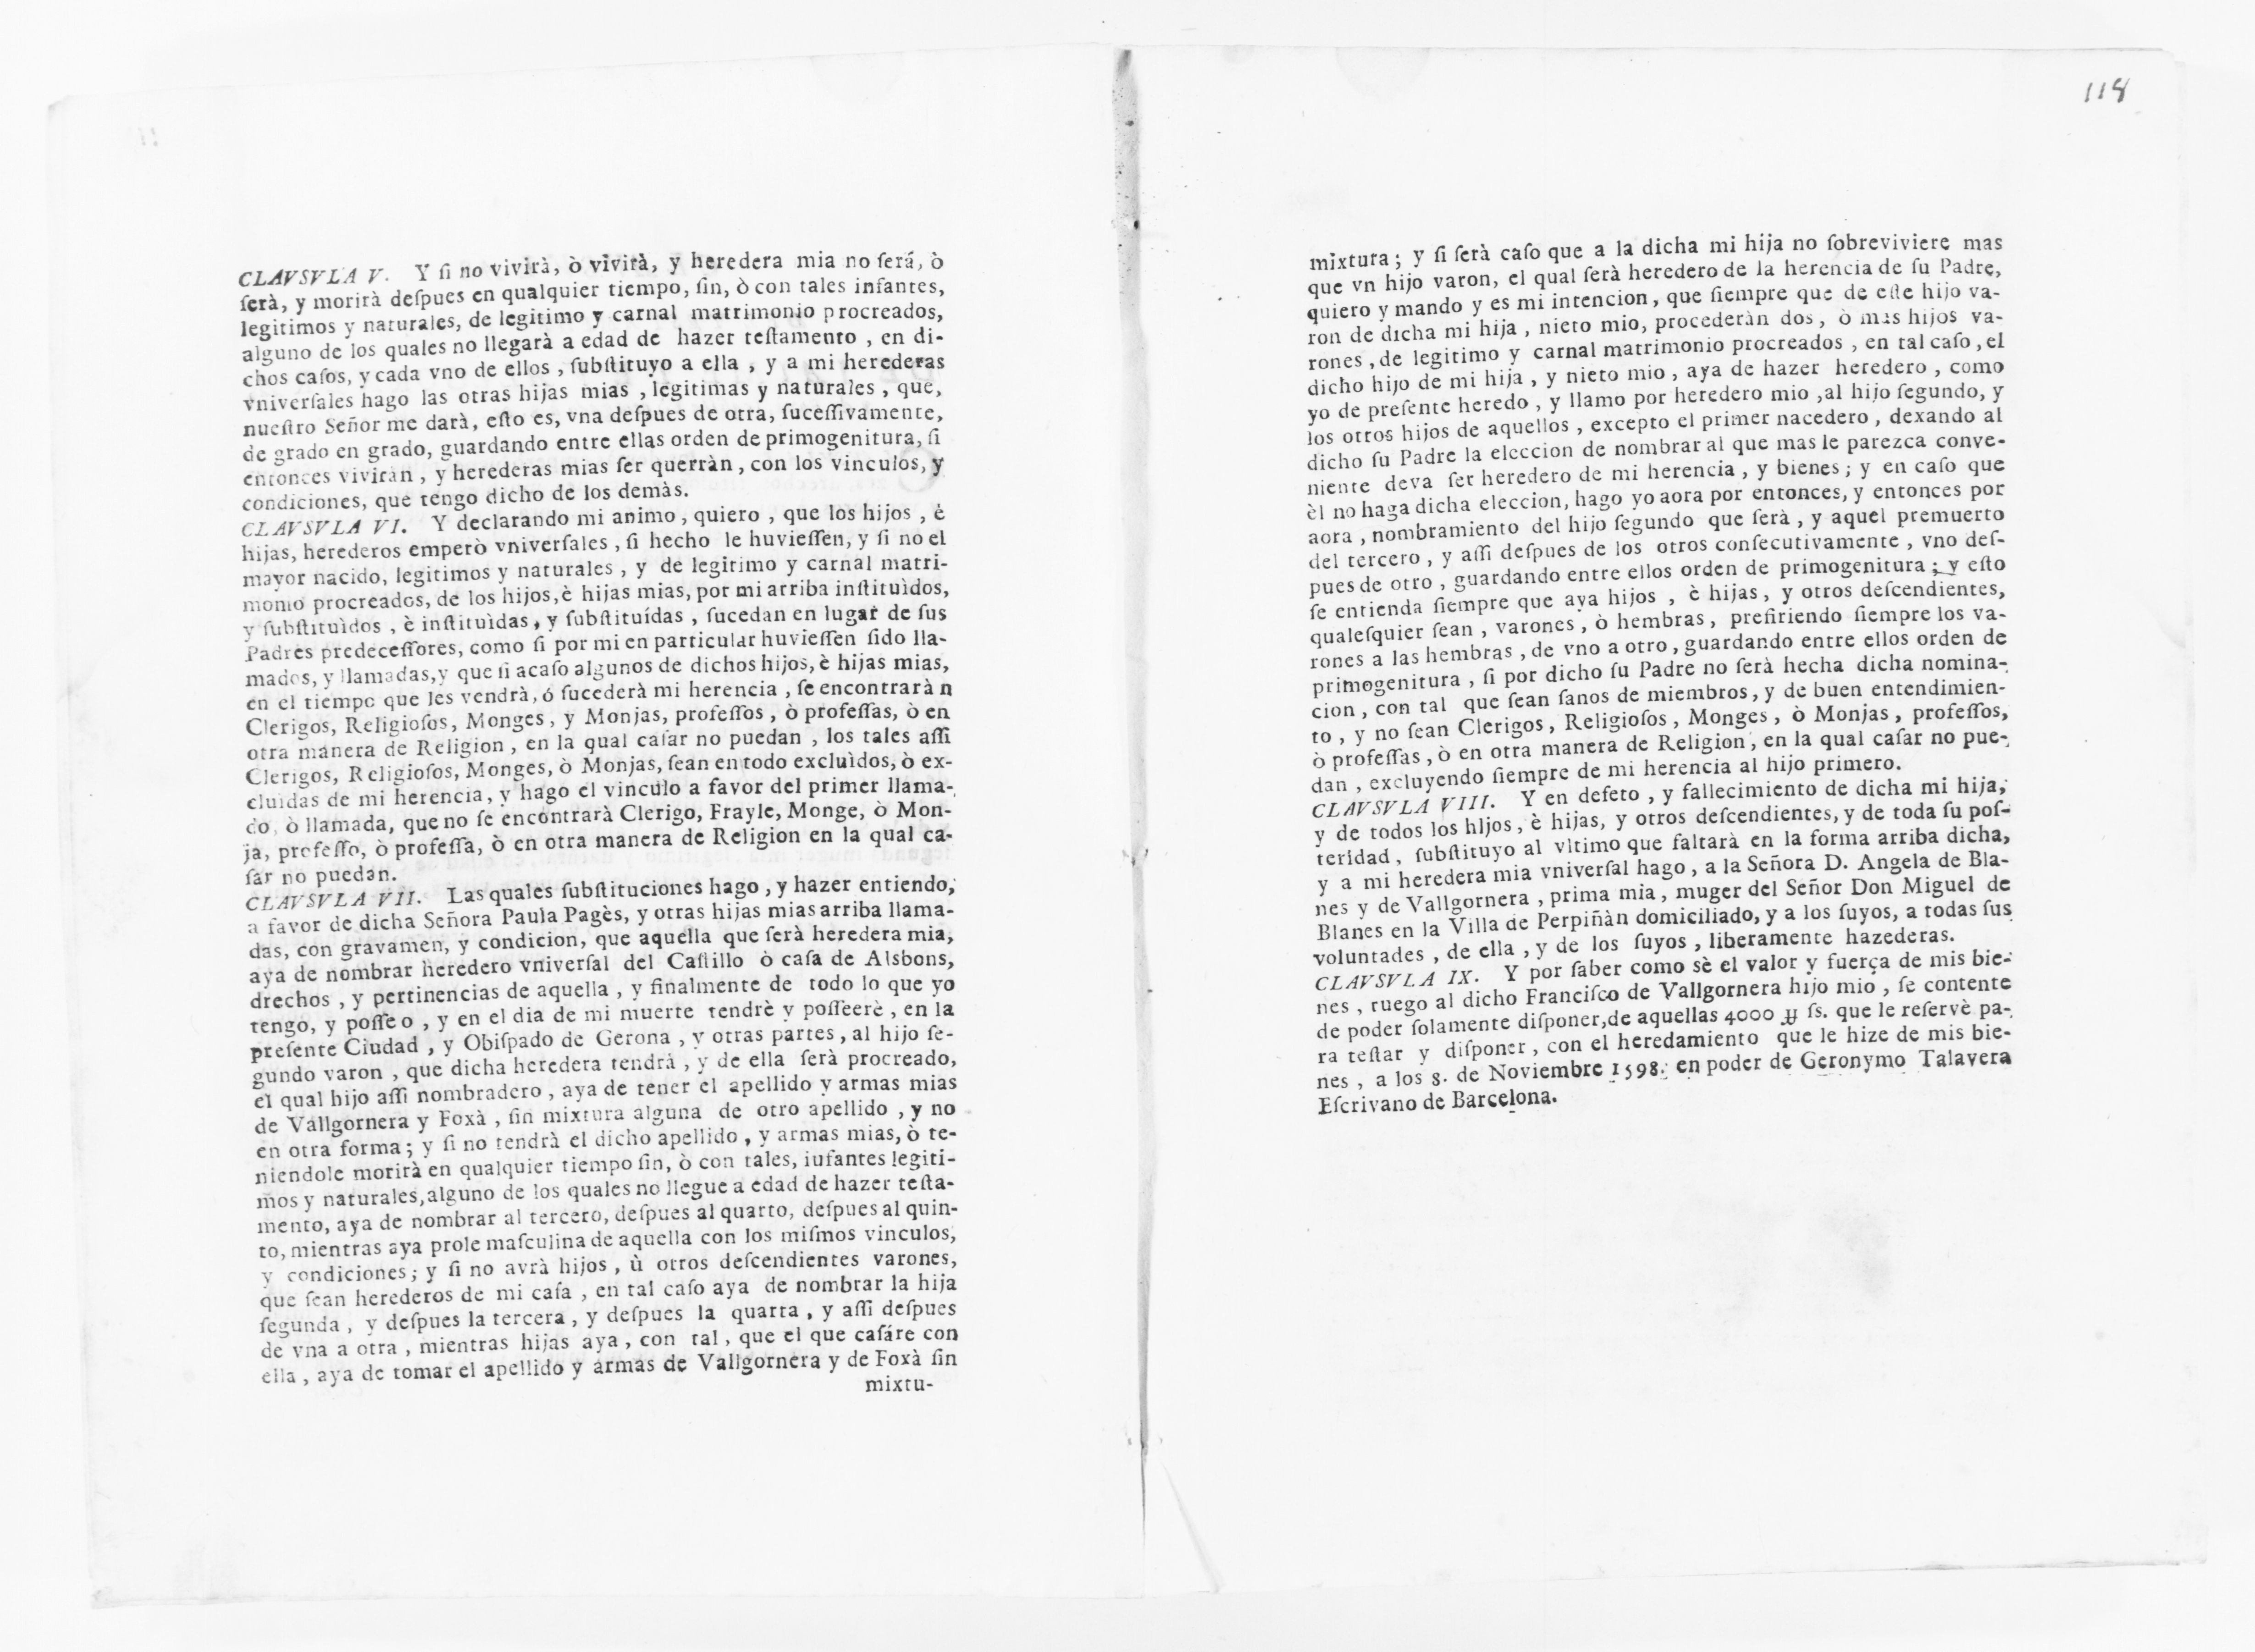 CLAVSVLA V. Y ſi no vivirà, ò vivirà, y heredera mia no ſerá, ò
ſerà, y morirà deſpues en qualquier tiempo, ſin, ò con tales infantes,
legitimos y naturales, de legitimo y carnal matrimonio procreados,
alguno de los quales no llegarà a edad de hazer teſtamento, en di-
chos caſos, y cada vno de ellos, ſubſtituyo a ella, y a mi herederas
vniverſales hago las otras hijas mias, legitimas y naturales, que,
nueſtro Señor me darà, eſto es, vna deſpues de otra, ſuceſſivamente,
de grado en grado, guardando entre ellas orden de primogenitura, ſi
entonces viviràn, y herederas mias ſer querràn, con los vinculos, y
condiciones, que tengo dicho de los demàs.
CLAVSVLA VI. Y declarando mi animo, quiero, que los hijos, è
hijas, herederos emperò vniverſales, ſi hecho le huvieſſen, y ſi no el
mayor nacido, legitimos y naturales, y de legitimo y carnal matri-
monio procreados, de los hijos, è hijas mias, por mi arriba inſtituìdos,
y ſubſtituìdos, è inſtituìdas, y ſubſtituídas, ſucedan en lugar de ſus
Padres predeceſſores, como ſi por mi en particular huvieſſen ſido lla-
mados, y llamadas, y que ſi acaſo algunos de dichos hijos, è hijas mias,
en el tiempo que les vendrà, ó ſucederà mi herencia, ſe encontraràn
Clerigos, Religioſos, Monges, y Monjas, profeſſos, ò profeſſas, ò en
otra manera de Religion, en la qual caſar no puedan, los tales aſſi
Clerigos, Religioſos, Monges, ò Monjas, ſean en todo excluìdos, ò ex-
cluìdas de mi herencia, y hago el vinculo a favor del primer llama-
do, ò llamada, que no ſe encontrarà Clerigo, Frayle, Monge, ò Mon-
ja, profeſſo, ò profeſſa, ò en otra manera de Religion en la qual ca-
ſar no puedan.
CLAVSVLA VII. Las quales ſubſtituciones hago, y hazer entiendo,
a favor de dicha Señora Paula Pagès, y otras hijas mias arriba llama-
das, con gravamen, y condicion, que aquella que ſerà heredera mia,
aya de nombrar heredero vniverſal del Caſtillo ò caſa de Alsbons,
drechos, y pertinencias de aquella, y finalmente de todo lo que yo
tengo, y poſſeo, y en el dia de mi muerte tendrè y poſſeerè, en la
preſente Ciudad, y Obiſpado de Gerona, y otras partes, al hijo ſe-
gundo varon, que dicha heredera tendrà, y de ella ſerà procreado,
el qual hijo aſſi nombradero, aya de tener el apellido y armas mias
de Vallgornera y Foxà, ſin mixtura alguna de otro apellido, y no
en otra forma; y ſi no tendrà el dicho apellido, y armas mias, ò te-
niendole morirà en qualquier tiempo ſin, ò con tales, iufantes legiti-
mos y naturales, alguno de los quales no llegue a edad de hazer teſta-
mento, aya de nombrar al tercero, deſpues al quarto, deſpues al quin-
to, mientras aya prole maſculina de aquella con los miſmos vinculos,
y condiciones; y ſi no avrà hijos, ù otros deſcendientes varones,
que ſean herederos de mi caſa, en tal caſo aya de nombrar la hija
ſegunda, y deſpues la tercera, y deſpues la quarta, y aſſi deſpues
de vna a otra, mientras hijas aya, con tal, que el que caſáre con
ella, aya de tomar el apellido y armas de Vallgornera y de Foxà ſin
mixtu-
118
mixtura; y ſi ſerà caſo que a la dicha mi hija no ſobreviviere mas
que vn hijo varon, el qual ſerà heredero de la herencia de ſu Padre,
quiero y mando y es mi intencion, que ſiempre que de eſte hijo va-
ron de dicha mi hija, nieto mio, procederàn dos, ò mas hijos va-
rones, de legitimo y carnal matrimonio procreados, en tal caſo, el
dicho hijo de mi hija, y nieto mio, aya de hazer heredero, como
yo de preſente heredo, y llamo por heredero mio, al hijo ſegundo, y
los otros hijos de aquellos, excepto el primer nacedero, dexando al
dicho ſu Padre la eleccion de nombrar al que mas le parezca conve-
niente deva ſer heredero de mi herencia, y bienes; y en caſo que
èl no haga dicha eleccion, hago yo aora por entonces, y entonces por
aora, nombramiento del hijo ſegundo que ſerà, y aquel premuerto
del tercero, y aſſi deſpues de los otros conſecutivamente, vno deſ-
pues de otro, guardando entre ellos orden de primogenitura; y eſto
ſe entienda ſiempre que aya hijos, è hijas, y otros deſcendientes,
qualeſquier ſean, varones, ò hembras, prefiriendo ſiempre los va-
rones a las hembras, de vno a otro, guardando entre ellos orden de
primogenitura, ſi por dicho ſu Padre no ſerà hecha dicha nomina-
cion, con tal que ſean ſanos de miembros, y de buen entendimien-
to, y no ſean Clerigos, Religioſos, Monges, ò Monjas, profeſſos,
ò profeſſas, ò en otra manera de Religion, en la qual caſar no pue-
dan, excluyendo ſiempre de mi herencia al hijo primero.
CLAVSVLA VIII. Y en defeto, y fallecimiento de dicha mi hija,
y de todos los hijos, è hijas, y otros deſcendientes, y de toda ſu poſ-
teridad, ſubſtituyo al vltimo que faltarà en la forma arriba dicha,
y a mi heredera mia vniverſal hago, a la Señora D. Angela de Bla-
nes y de Vallgornera, prima mia, muger del Señor Don Miguel de
Blanes en la Villa de Perpiñàn domiciliado, y a los ſuyos, a todas ſus
voluntades, de ella, y de los ſuyos, liberamente hazederas.
CLAVSVLA IX. Y por ſaber como sè el valor y fuerça de mis bie-
nes, ruego al dicho Franciſco de Vallgornera hijo mio, ſe contente
de poder ſolamente diſponer, de aquellas 4000 ſs. que le reſervè pa-
ra teſtar y diſponer, con el heredamiento que le hize de mis bie-
nes, a los 8. de Noviembre 1598. en poder de Geronymo Talavera
Eſcrivano de Barcelona.